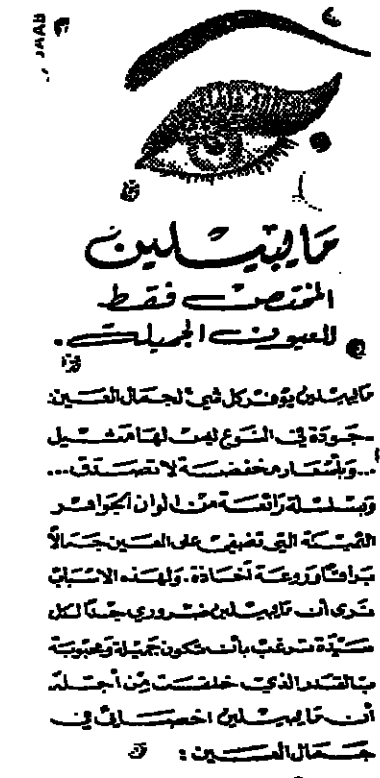 مَايبيـلين
المختص فقط
للعيون الجميلة.
مايبيـلين يوفر كل شيء لجمال العين:
-جودة في النوع ليس لها مثيل
...وبأسعار مخفضة لا تصدق...
وبسلسلة رائعة من الوان الجواهر
الثمينة التي تضفي على العين جمالاً
براقاً وروعة أخاذة. ولهذه الاسباب
ترى أن مايبيـلين ضروري جداً لكل
سيدة ترغب بأن تكون جميلة ومحبوبة
بالقدر الذي خلقت من أجله.
أن مايبيـلين اخصائي في
جمال العين: